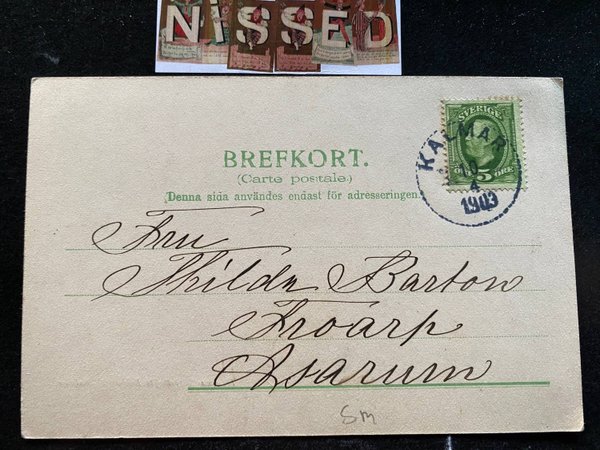 NiSSED
SVERIGE
5 ÖRE
KALMAR
4
1903
BREFKORT.
(Carte postale.)
(Denna sida användes endast för adresseringen.
Fru
Thilda Barton
Froarp
Asarum
Sm